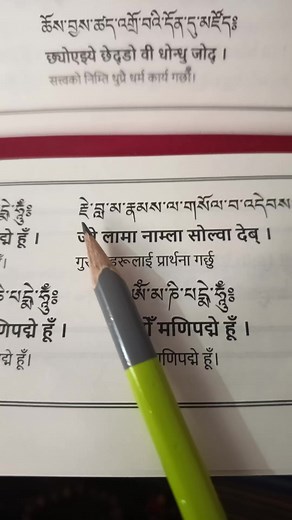 ཆོས་བྱས་ཚད་འགྲོ་བའི་དོན་དུ་མཛོད༔
छ्योएझ्ये छेद्डो वी धोन्धु जोद् ।
सत्त्वको निम्ति थुप्रै धर्म कार्य गर्छौ।
རྗེ་བླ་མ་རྣམས་ལ་གསོལ་བ་འདེབས
लामा नाम्ला सोल्वा देब् ।
हरूलाई प्रार्थना गर्छु
པདྨེ་ཧཱུྃ༔ ཨོཾ་མ་ཎི་པདྨེ་ཧཱུྃ༔
णिपद्मे हूँ । मणिपद्मे हूँ ।
द्मे हूँ। णिपद्मे हूँ।